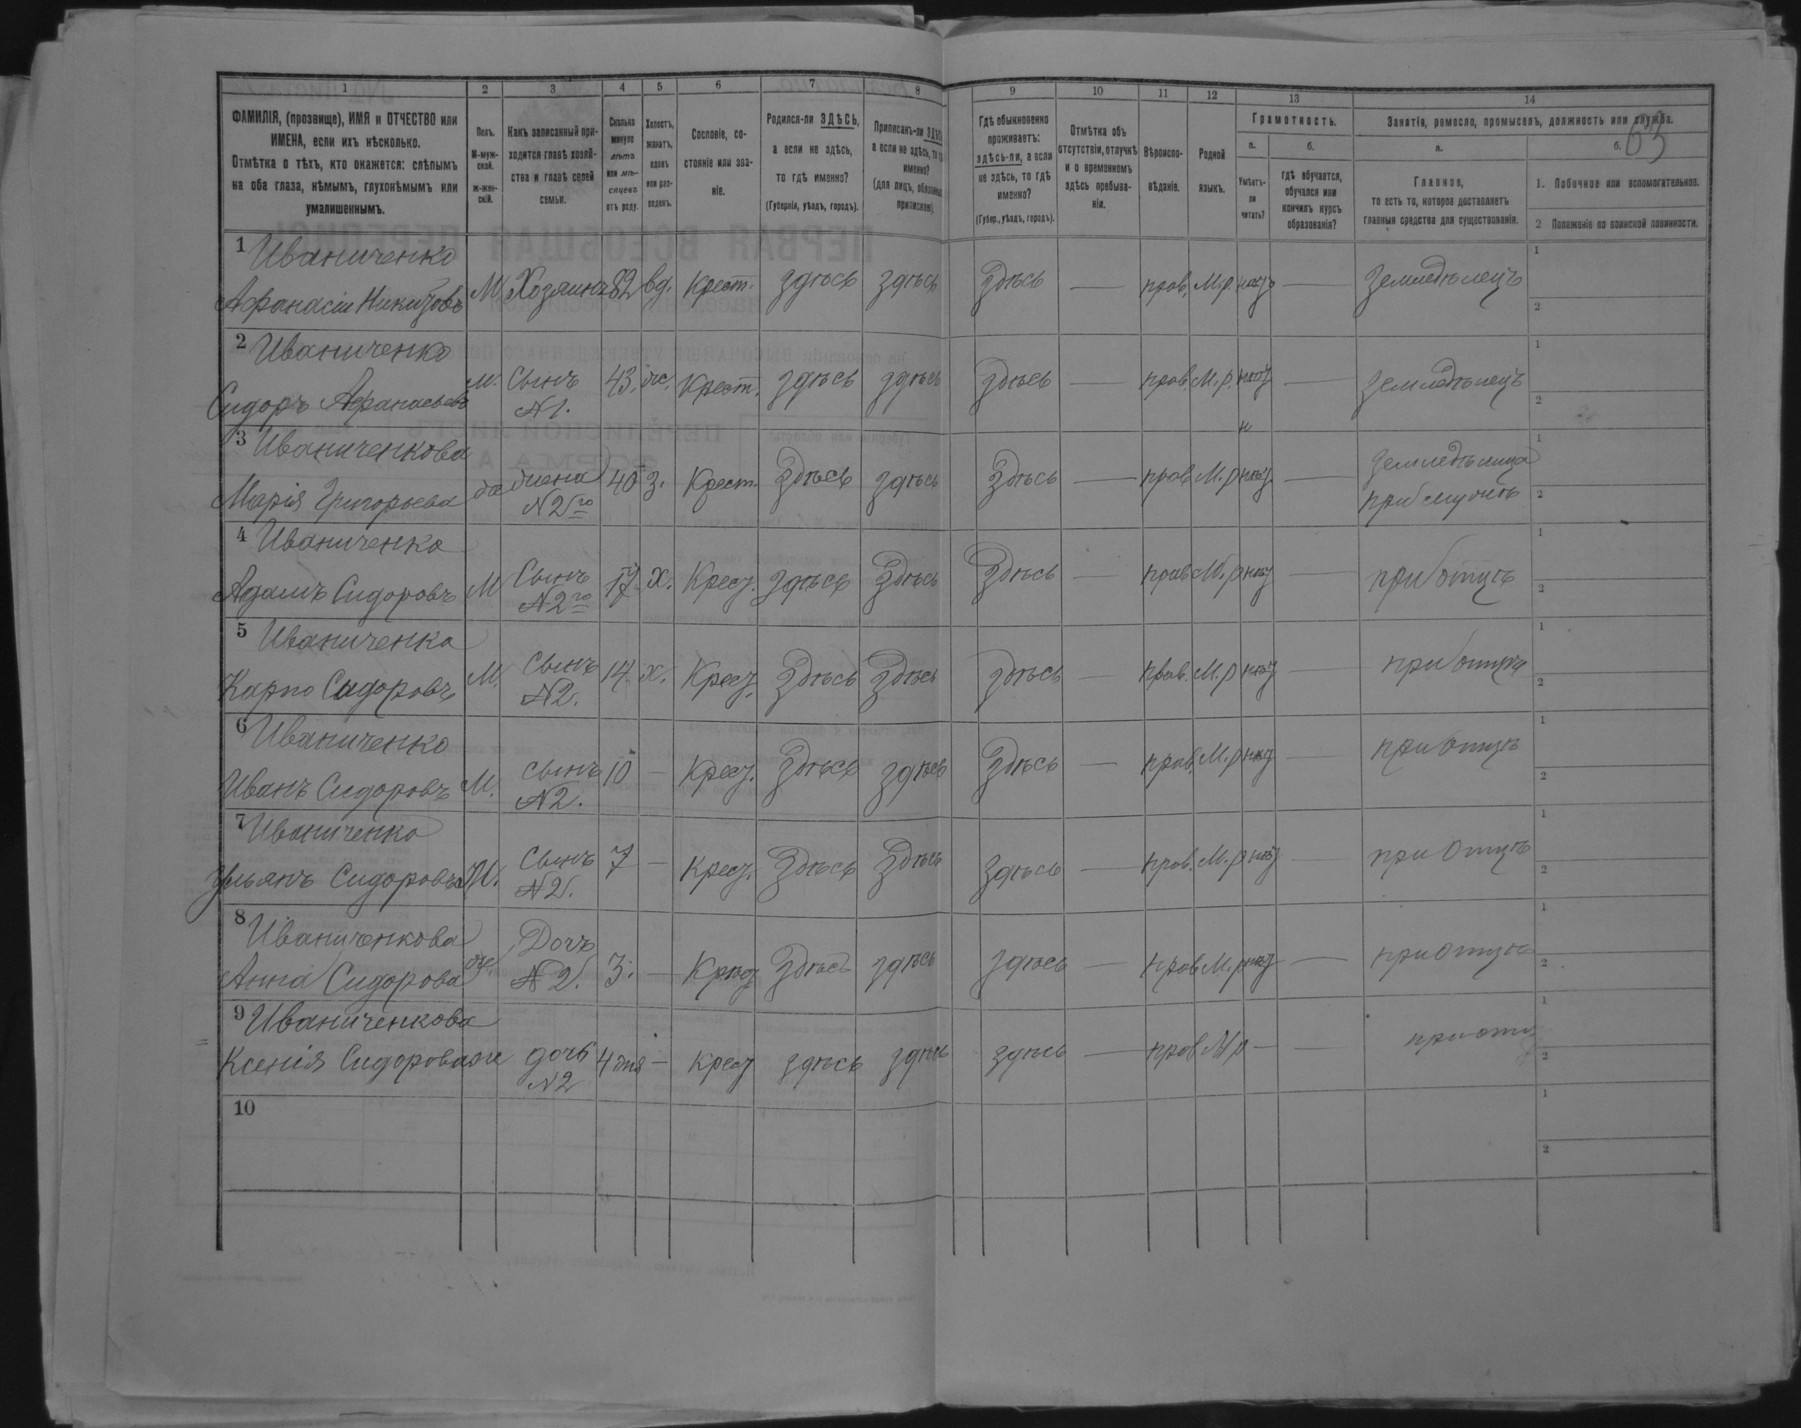 1 2 3 4 5 6 7 8 9 10 11 12 13 14
ФАМИЛІЯ, (прозвище), ИМЯ и ОТЧЕСТВО или ИМЕНА, если ихъ нѣсколько.
Отмѣтка о тѣхъ, кто окажется: слѣпымъ на оба глаза, нѣмымъ, глухонѣмымъ или умалишеннымъ.
Полъ. М-мужской. ж-женскій.
Какъ записанный приходится главѣ хозяйства и главѣ своей семьи.
Сколько минуло лѣтъ или мѣсяцевъ отъ роду.
Холостъ, женатъ, вдовъ или разведенъ.
Сословіе, состояніе или званіе.
Родился-ли ЗДѢСЬ, а если не здѣсь, то гдѣ именно?
(Губернія, уѣздъ, городъ).
Приписанъ-ли ЗДѢСЬ, а если не здѣсь, то гдѣ именно?
(для лицъ, обязанныхъ припискою).
Гдѣ обыкновенно проживаетъ: здѣсь-ли, а если не здѣсь, то гдѣ именно?
(Губер., уѣздъ, городъ).
Отмѣтка объ отсутствіи, отлучкѣ и о временномъ здѣсь пребываніи.
Вѣроисповѣданіе.
Родной языкъ.
Грамотность.
а. Умѣетъ-ли читать?
б. гдѣ обучается, обучался или кончилъ курсъ образованія?
Занятія, ремесло, промыселъ, должность или служба.
65
а. Главное, то есть то, которое доставляетъ главныя средства для существованія.
б. 1. Побочное или вспомогательное.
2 Положеніе по воинской повинности.
1 Иваниченко
Афанасій Никитовъ М Хозяинъ 82 вд. Крест. здѣсь здѣсь Здѣсь — прав. М.р нѣтъ — Земледѣлецъ 1 2
2 Иваниченко
Сидоръ Афанасьевъ м. Сынъ N1. 43. ж. Крест. здѣсь здѣсь здѣсь — прав. М.р. нѣтъ — Земледѣлецъ 1 2
3 Иваниченкова
Марія Григорьева жена N2го 40 з. Крест. Здѣсь здѣсь Здѣсь — прав. М.р нѣтъ — Земледѣлица при мужѣ 1 2
4 Иваниченко
Адамъ Сидоровъ М Сынъ N2го 17 х. Крес. здѣсь Здѣсь Здѣсь — прав М.р нѣт — при отцѣ 1 2
5 Иваниченко
Карпо Сидоровъ М. Сынъ N2. 14. х. Крес. Здѣсь Здѣсь здѣсь — прав. М.р нѣт — при отцѣ 1 2
6 Иваниченко
Иванъ Сидоровъ М. сынъ N2. 10 — Крес. Здѣсь здѣсь Здѣсь — прав. М.р нѣт — при отцѣ 1 2
7 Иваниченко
Ульянъ Сидоровъ М. Сынъ N2. 7 — Крес. Здѣсь Здѣсь здѣсь — прав. М.р нѣт — при отцѣ 1 2
8 Иваниченкова
Анна Сидорова ж. Дочъ N2. 3. — Здѣсь здѣсь здѣсь — прав М.р нѣт — при отцѣ 1 2
9 Иваниченкова
Ксенія Сидорова ж дочь N2 4 дня — крес здѣсь здѣсь здѣсь — прав М р — — при отц 1 2
10 1 2